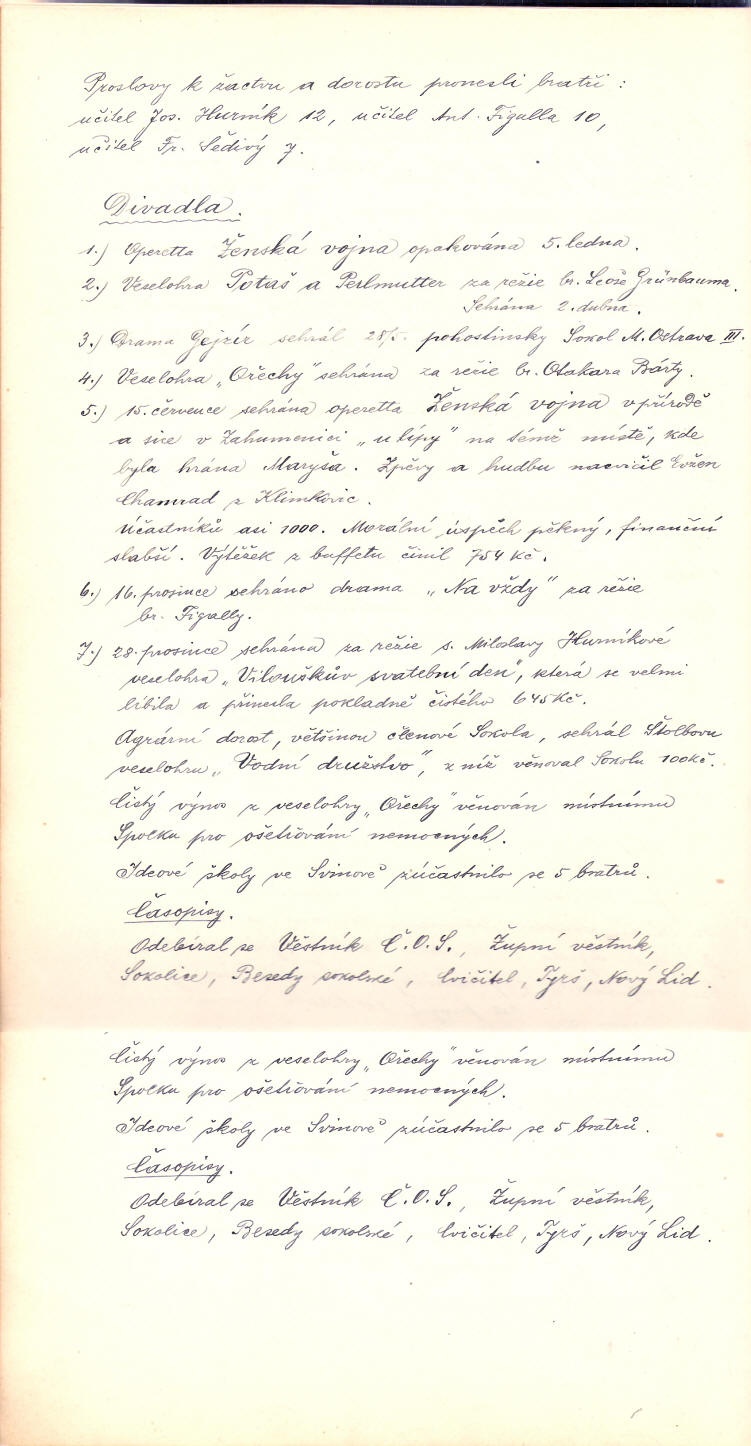 Proslovy k žactvu a dorostu pronesli bratři :
učitel Jos. Hurník 12, učitel Ant. Figalla 10,
učitel Fr. Šedivý 7.
Divadla.
1.) Operetta Ženská vojna opakována 5. ledna.
2.) Veselohra Potaš a Perlmutter za režie br. Leoše Grünbauma.
Sehrána 2. dubna.
3.) Drama Gejzír sehrál 28/5. pohostinsky Sokol M. Ostrava III.
4.) Veselohra „Ořechy" sehrána za režie br. Otakara Bárty.
5.) 15. července sehrána operetta Ženská vojna v přírodě
a sice v Zahumenici „u lípy" na témž místě, kde
byla hrána Maryša. Zpěvy a hudbu nacvičil Evžen
Chamrad z Klimkovic.
Účastníků asi 1000. Morální úspěch pěkný, finanční
slabší. Výtěžek z buffetu činil 754 Kč.
6.) 16. prosince sehráno drama „Na vždy" za režie
br. Figally.
7.) 28. prosince sehrána za režie s. Miloslavy Hurníkové
veselohra „Viloušκův svatební den", která se velmi
líbila a přinesla pokladně čistého 645 Kč.
Agrární dorost, většinou členové Sokola, sehrál Štolbovu
veselohru „Vodní družstvo", z níž věnoval Sokolu 100 Kč.
Čistý výnos z veselohry „Ořechy" věnován místnímu
Spolku pro ošetřování nemocných.
Ideové školy ve Svinově zúčastnilo se 5 bratrů.
Časopisy.
Odebíral se Věstník Č.O.S., Župní věstník,
Sokolice, Besedy sokolské, Cvičitel, Tyrš, Nový Lid.
Čistý výnos z veselohry „Ořechy" věnován místnímu
Spolku pro ošetřování nemocných.
Ideové školy ve Svinově zúčastnilo se 5 bratrů.
Časopisy.
Odebíral se Věstník Č.O.S., Župní věstník,
Sokolice, Besedy sokolské, Cvičitel, Tyrš, Nový Lid.